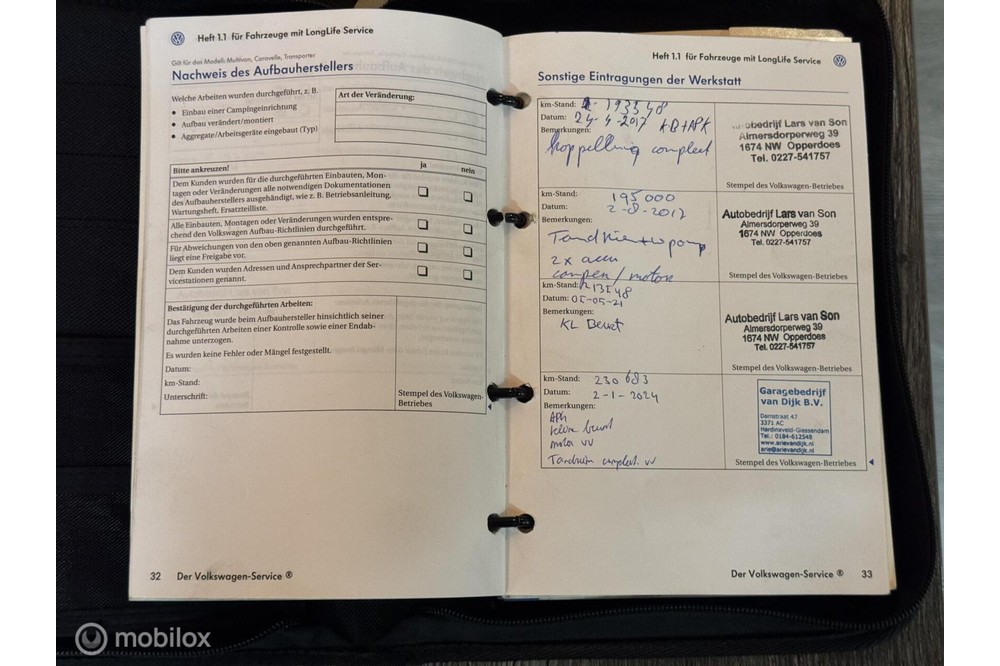 Heft 1.1 für Fahrzeuge mit LongLife Service
Gilt für das Modell: Multivan, Caravelle, Transporter
Nachweis des Aufbauherstellers
Welche Arbeiten wurden durchgeführt, z. B.
• Einbau einer Campingeinrichtung
• Aufbau verändert/montiert
• Aggregate/Arbeitsgeräte eingebaut (Typ)
Art der Veränderung:
Bitte ankreuzen! ja nein
Dem Kunden wurden für die durchgeführten Einbauten, Mon-
tagen oder Veränderungen alle notwendigen Dokumentationen
des Aufbauherstellers ausgehändigt, wie z. B. Betriebsanleitung,
Wartungsheft, Ersatzteilliste.
Alle Einbauten, Montagen oder Veränderungen wurden entspre-
chend den Volkswagen Aufbau-Richtlinien durchgeführt.
Für Abweichungen von den oben genannten Aufbau-Richtlinien
liegt eine Freigabe vor.
Dem Kunden wurden Adressen und Ansprechpartner der Ser-
vicestationen genannt.
Bestätigung der durchgeführten Arbeiten:
Das Fahrzeug wurde beim Aufbauhersteller hinsichtlich seiner
durchgeführten Arbeiten einer Kontrolle sowie einer Endab-
nahme unterzogen.
Es wurden keine Fehler oder Mängel festgestellt.
Datum:
km-Stand:
Unterschrift:
Stempel des Volkswagen-
Betriebes
32 Der Volkswagen-Service ®
Heft 1.1 für Fahrzeuge mit LongLife Service
Sonstige Eintragungen der Werkstatt
km-Stand: 193348
Datum: 24-4-2017
Bemerkungen: KB+APK
koppelling compleet
Autobedrijf Lars van Son
Almersdorperweg 39
1674 NW Opperdoes
Tel. 0227-541757
Stempel des Volkswagen-Betriebes
km-Stand: 195000
Datum: 2-8-2017
Bemerkungen:
Tandriem+w pomp
2x accu
campen/motor
Autobedrijf Lars van Son
Almersdorperweg 39
1674 NW Opperdoes
Tel. 0227-541757
Stempel des Volkswagen-Betriebes
km-Stand: 213548
Datum: 05-05-21
Bemerkungen:
KL Beurt
Autobedrijf Lars van Son
Almersdorperweg 39
1674 NW Opperdoes
Tel. 0227-541757
Stempel des Volkswagen-Betriebes
km-Stand: 230683
Datum: 2-1-2024
Bemerkungen:
APK
kleine beurt
motor vv
Tandriem compleet vv
Garagebedrijf
van Dijk B.V.
Damstraat 47
3371 AC
Hardinxveld-Giessendam
Tel.: 0184-612548
www.arievandijk.nl
arie@arievandijk.nl
Stempel des Volkswagen-Betriebes
Der Volkswagen-Service ® 33
mobilox